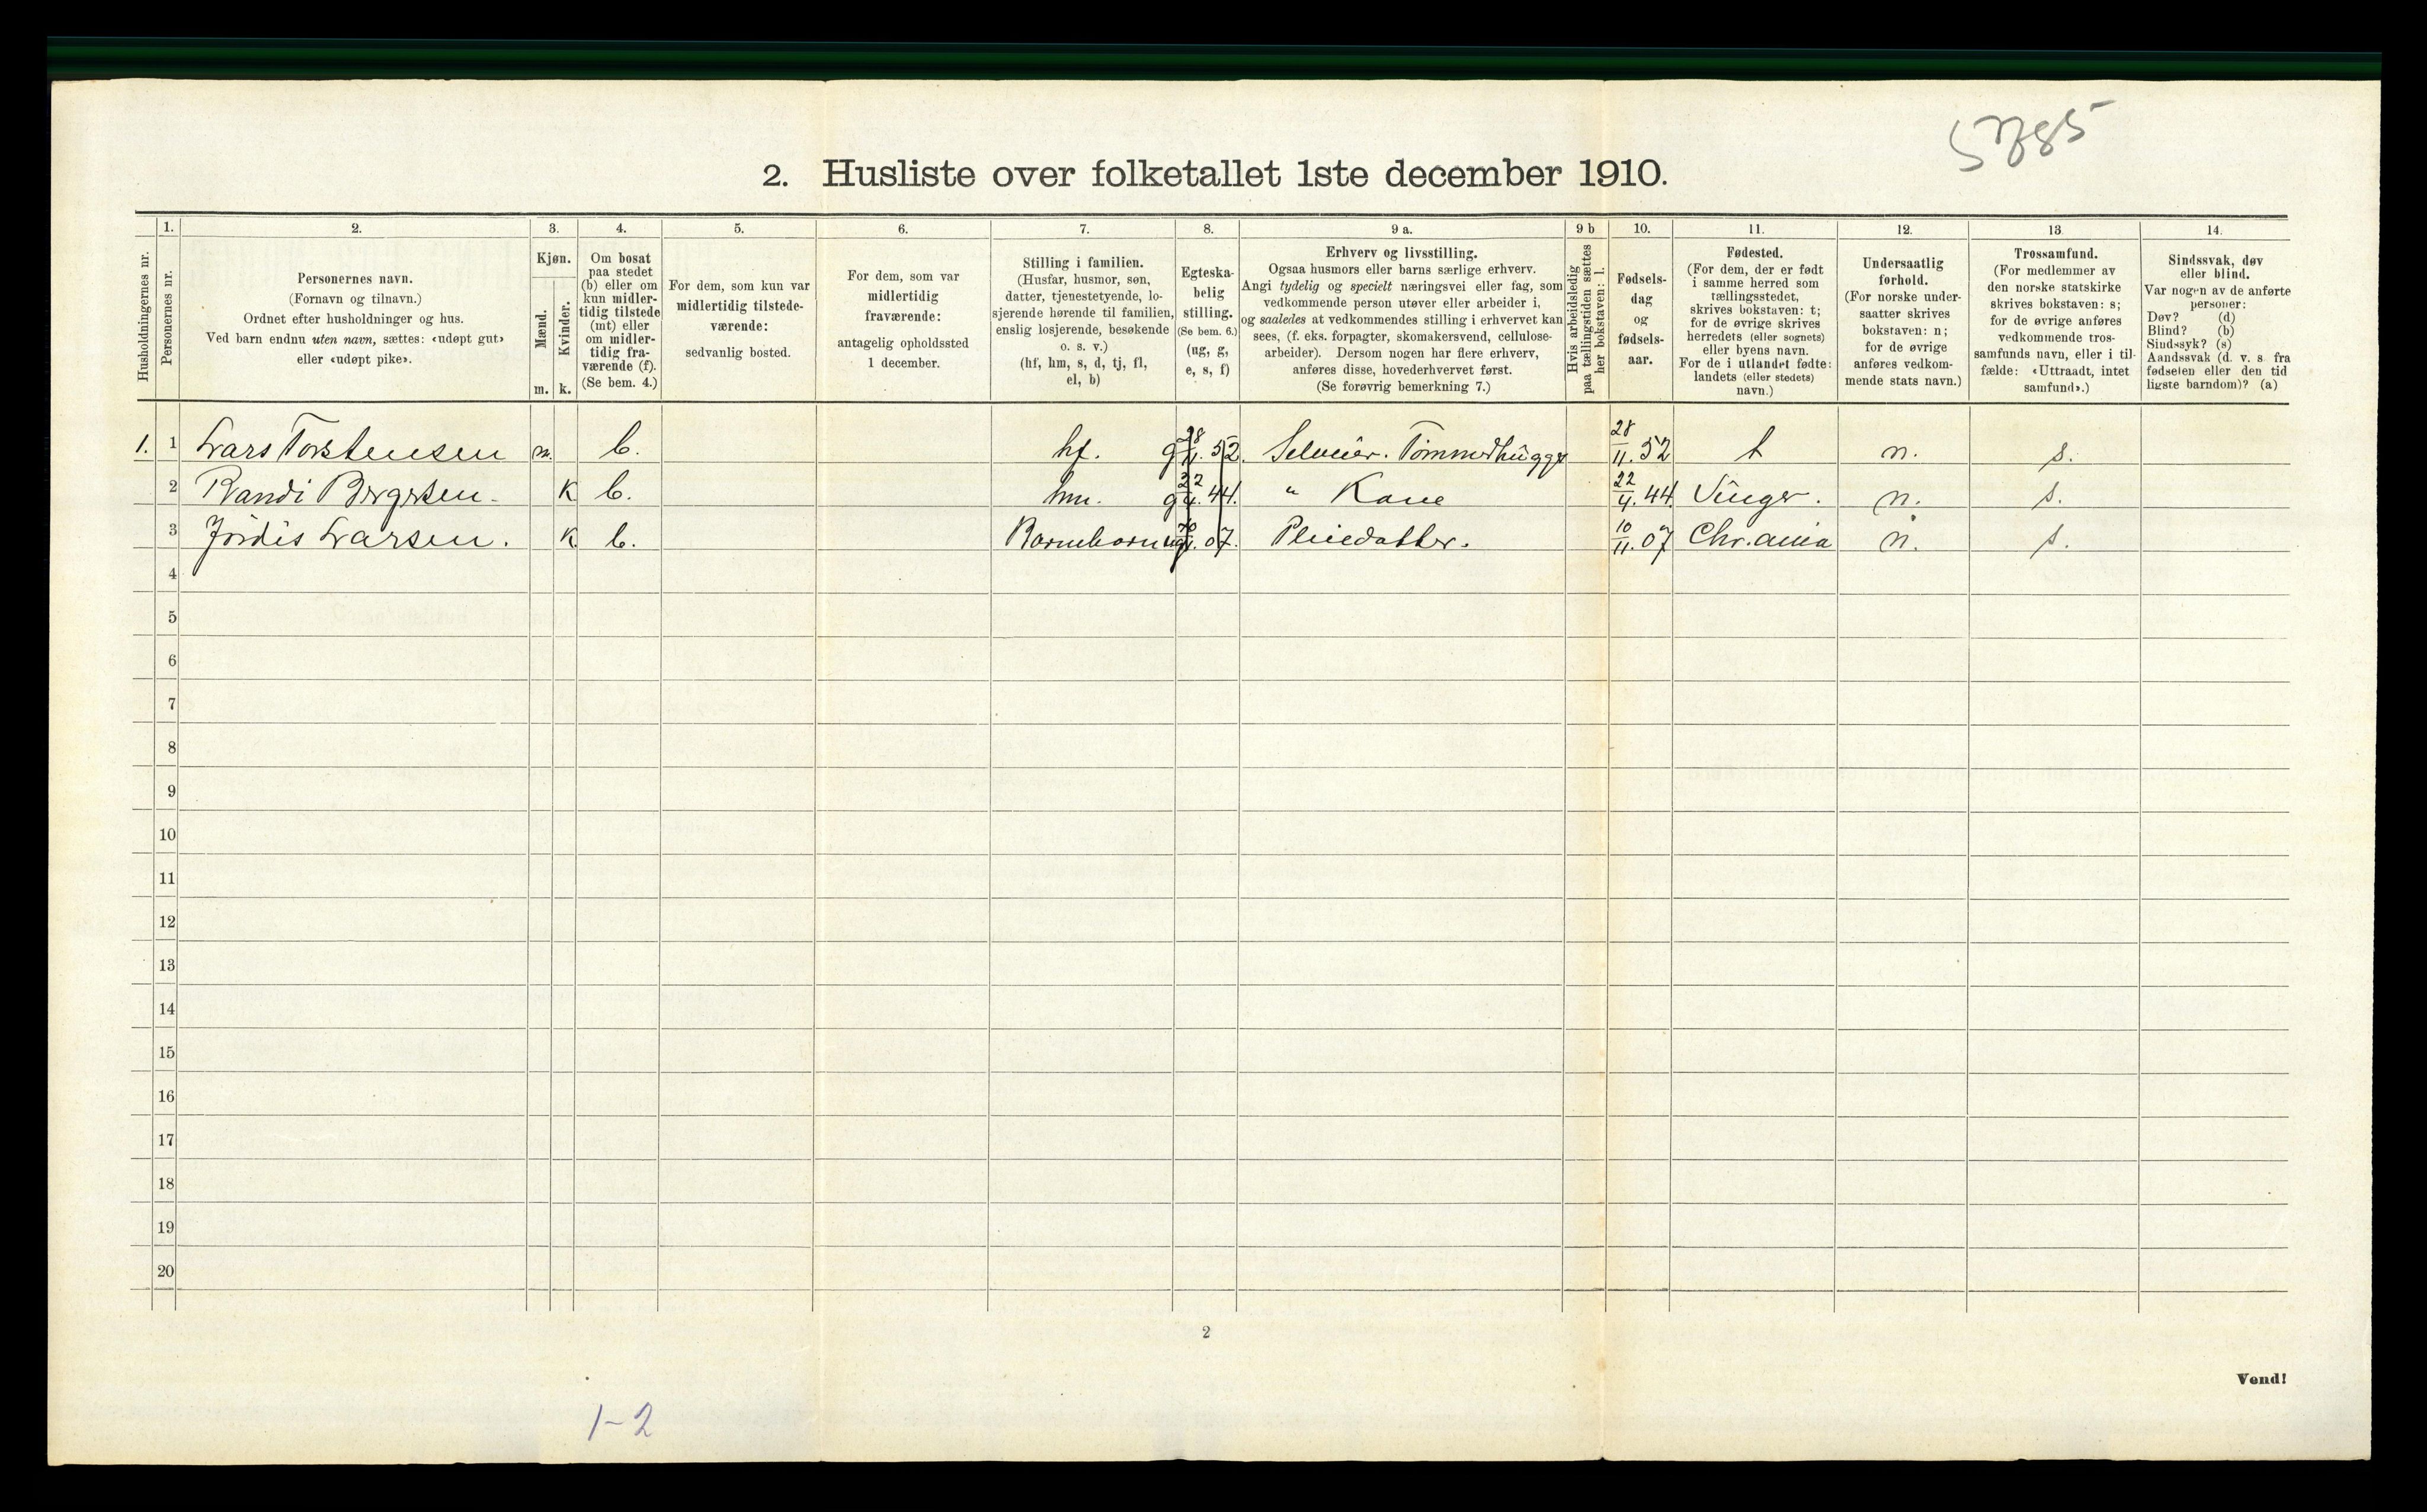 5785
2. Husliste over folketallet 1ste december 1910.
Husholdningernes nr.
1.
Personernes nr.
2.
Personernes navn.
(Fornavn og tilnavn.)
Ordnet efter husholdninger og hus.
Ved barn endnu uten navn, sættes: «udøpt gut»
eller «udøpt pike».
3.
Kjøn.
Mænd.
Kvinder.
m. k.
4.
Om bosat
paa stedet
(b) eller om
kun midler-
tidig tilstede
(mt) eller
om midler-
tidig fra-
værende (f).
(Se bem. 4.)
5.
For dem, som kun var
midlertidig tilstede-
værende:
sedvanlig bosted.
6.
For dem, som var
midlertidig
fraværende:
antagelig opholdssted
1 december.
7.
Stilling i familien.
(Husfar, husmor, søn,
datter, tjenestetyende, lo-
sjerende hørende til familien,
enslig losjerende, besøkende
o. s. v.)
(hf, hm, s, d, tj, fl,
el, b)
8.
Egteska-
belig
stilling.
(Se bem. 6.)
(ug, g,
e, s, f)
9 a.
Erhverv og livsstilling.
Ogsaa husmors eller barns særlige erhverv.
Angi tydelig og specielt næringsvei eller fag, som
vedkommende person utøver eller arbeider i,
og saaledes at vedkommendes stilling i erhvervet kan
sees, (f. eks. forpagter, skomakersvend, cellulose-
arbeider). Dersom nogen har flere erhverv,
anføres disse, hovederhvervet først.
(Se forøvrig bemerkning 7.)
9 b
Hvis arbeidsledig
paa tællingstiden sættes
her bokstaven: l.
10.
Fødsels-
dag
og
fødsels-
aar.
11.
Fødested.
(For dem, der er født
i samme herred som
tællingsstedet,
skrives bokstaven: t;
for de øvrige skrives
herredets (eller sognets)
eller byens navn.
For de i utlandet fødte:
landets (eller stedets)
navn.)
12.
Undersaatlig
forhold.
(For norske under-
saatter skrives
bokstaven: n;
for de øvrige
anføres vedkom-
mende stats navn.)
13
Trossamfund.
(For medlemmer av
den norske statskirke
skrives bokstaven: s;
for de øvrige anføres
vedkommende tros-
samfunds navn, eller i til-
fælde: «Uttraadt, intet
samfund».)
14.
Sindssvak, døv
eller blind.
Var nogen av de anførte
personer:
Døv? (d)
Blind? (b)
Sindssyk? (s)
Aandssvak (d. v. s. fra
fødselen eller den tid
ligste barndom)? (a)
1. 1 Lars Torstensen m. b. hf. g 28/11. 52. Selveier. Tømmerhugger 28/11. 52 t n. s.
2 Randi Bergersen - K b. hm. g 22/4. 44. " Kone 22/4. 44. Vinger. n. s.
3 Jørdis Larsen. K b. Barnebarn ug 10/11. 07. Pleiedatter. 10/11. 07 Chr.ania n. s.
4
5
6
7
8
9
10
11
12
13
14
15
16
17
18
19
20
2
Vend!
1-2